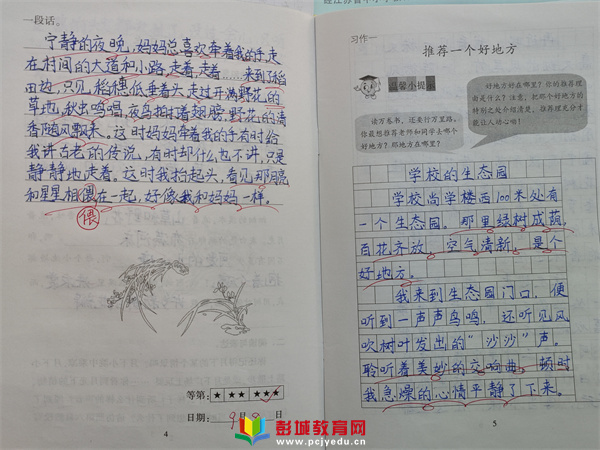 一段话。
宁静的夜晚,妈妈总喜欢牵着我的手,走
在村间的大道和小路,走着,走着……来到了稻
田边,只见,稻穗低垂着头,走过开满野花的
草地,秋虫鸣唱,夜鸟拍打着翅膀,野花的清
香随风飘来。这时妈妈牵着我的手有时给
我讲古老的传说,有时却什么也不讲,只是
静静地走着。这时我抬起头,看见那月亮
和星星相偎在一起,好像我和妈妈一样。
偎
等第:★ ★ ★★★
日期:9月9日
4
习作一
推荐一个好地方
温馨小提示
好地方好在哪里?你的推荐理
由是什么?注意,把那个好地方的
特别之处介绍清楚、推荐理充分才
能让人动心哟!
读万卷书,还要行万里路,
你最想推荐老师和同学去哪个
好地方?那地方在哪里?
学校的生态园
学校尚学楼西100米处有
一个生态园。那里绿树成荫,
百花齐放,空气清新,是个
好地方。
我来到生态园门口,便
听到一声声鸟鸣,还听见风
吹树叶发出的“沙沙”声。
聆听着美妙的交响曲,顿时
我急燥的心情平静了下来。
5
彭城教育网
www.pcjyedu.cn